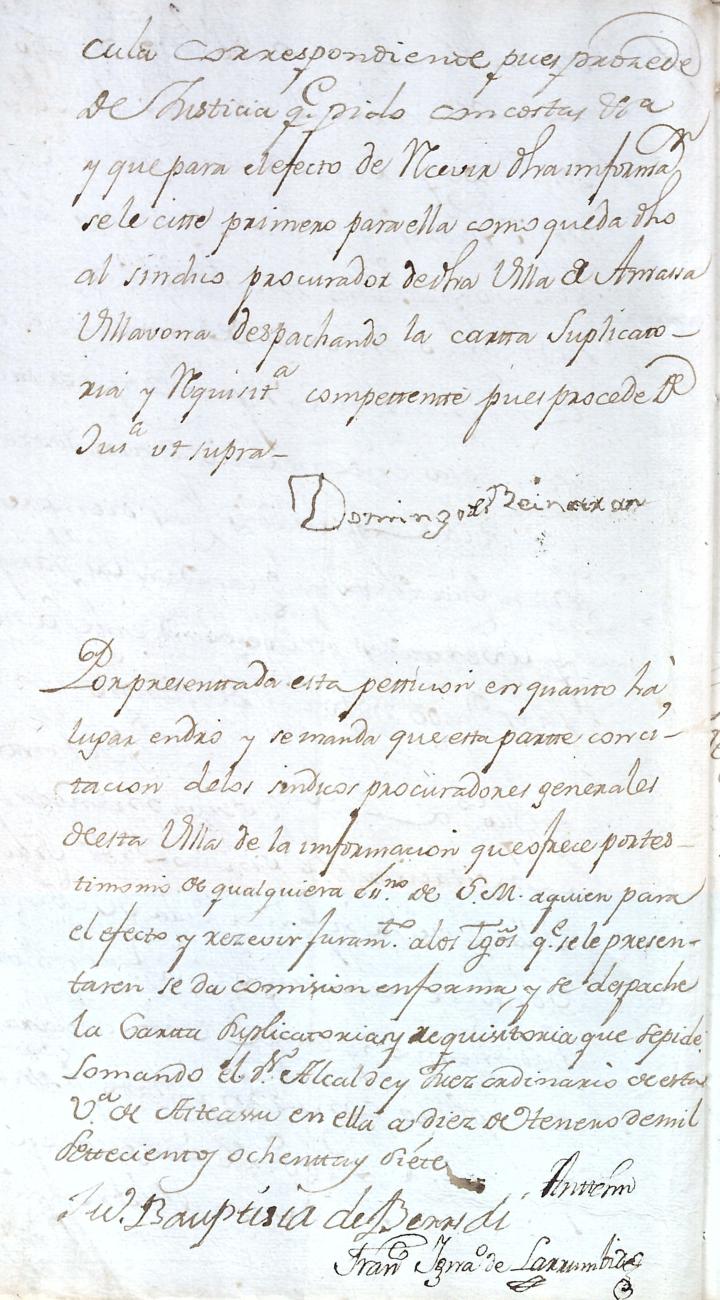 cula correspondiente pues procede
de Justicia q.e pido con costas &.a
y que para el efecto de Rcevir dhra informaz.n
se le citte primero para ella como queda dho
al sindico procurador de dhra Villa de Amassa
Villavona despachando la cartta Suplicato-
ria y Rquisit.a compettentte pues procede de
Jus.a ut supra-
Domingo de Beinaran
Por presenttada esta petticion en quanto hà
lugar en dro y se manda que esta partte con ci-
tacion de los sindicos procuradores generales
de esta Villa de la informacion que ofrece por tes-
timonio de qualquiera Ss.no de S.M. a quien para
el efecto y rezevir juram.to a los Tgōs q.e se le presen-
taren se da comision en forma, y se despache
la Cartta suplicatoria y requisitoria que se pide
Lo mando el S.r Alcalde y Juez ordinario de esta
V.a de Asteassu en ella a diez de Henero de mil
settecientos ochentta y siete
Antte mi
Ju.n Bauptista de Berridi
Fran.co Ygna.o de Larrumbide